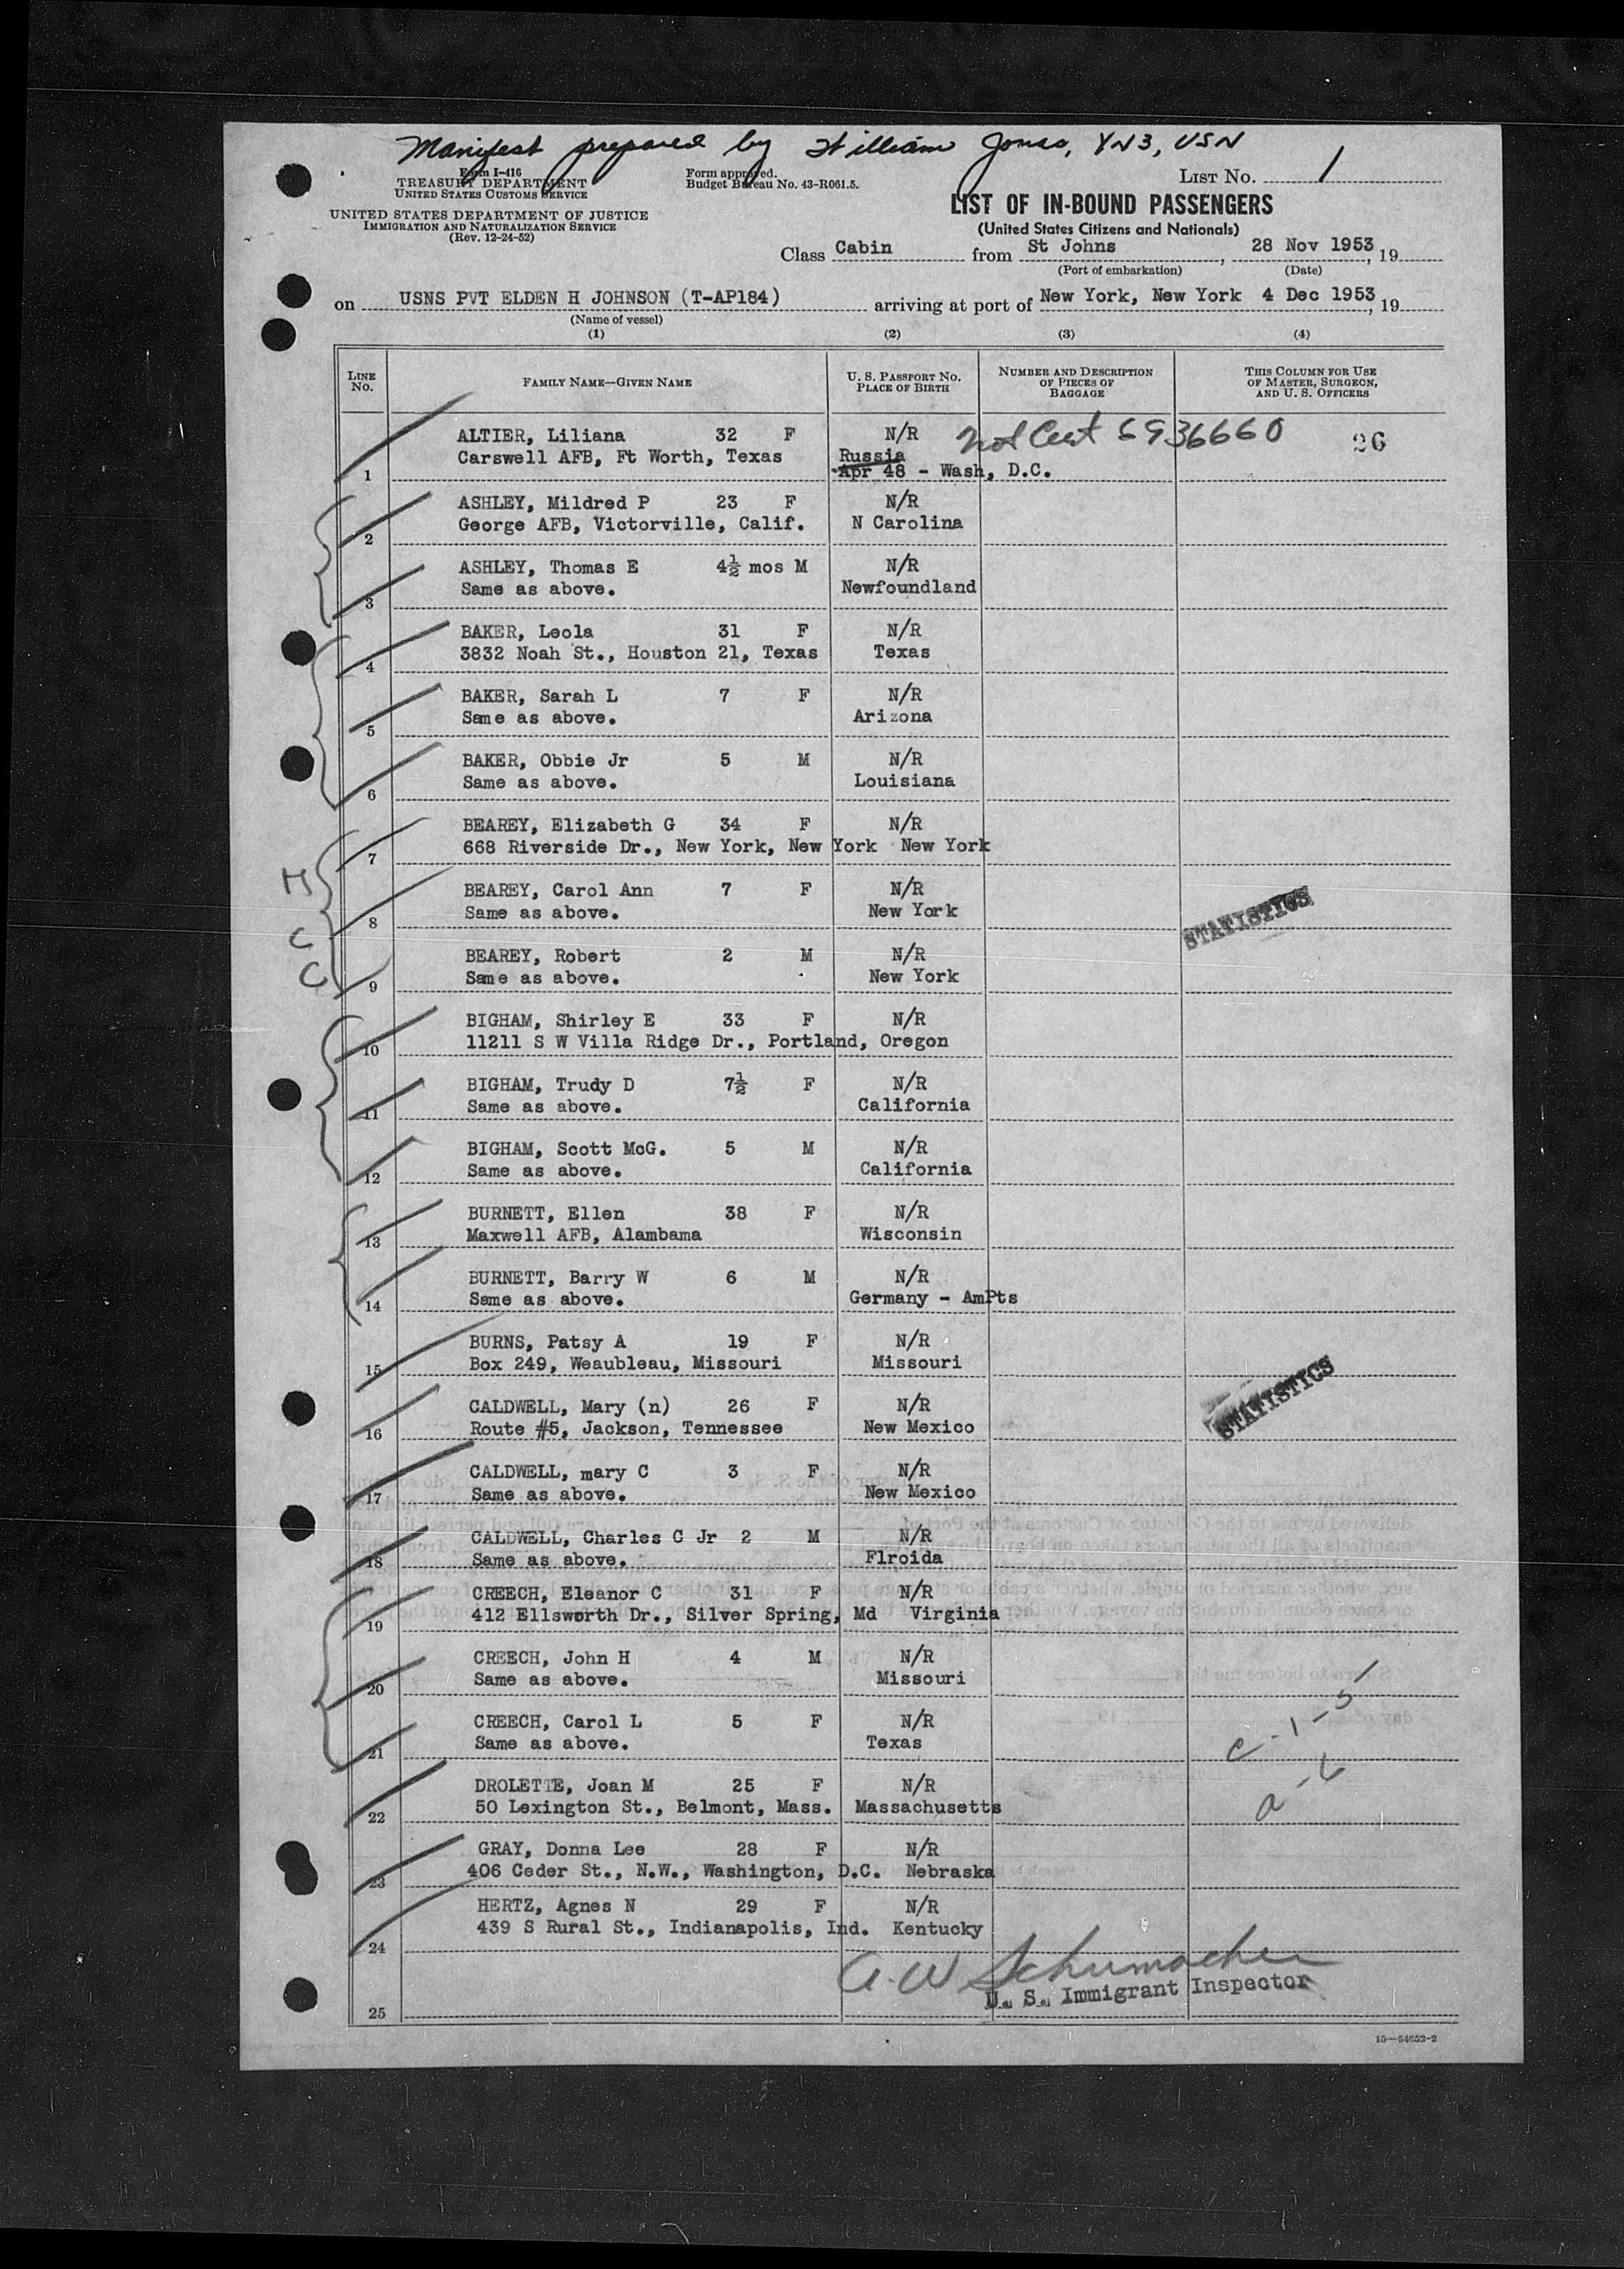 Manifest prepared by William Jones, YN3, USN
Form I-416
TREASURY DEPARTMENT
UNITED STATES CUSTOMS SERVICE
Form approved.
Budget Bureau No. 43-R061.5.
LIST NO. 1
UNITED STATES DEPARTMENT OF JUSTICE
IMMIGRATION AND NATURALIZATION SERVICE
(Rev. 12-24-52)
LIST OF IN-BOUND PASSENGERS
(United States Citizens and Nationals)
Class Cabin from St Johns, 28 Nov 1953, 19
(Port of embarkation) (Date)
on USNS PVT ELDEN H JOHNSON (T-AP184) arriving at port of New York, New York 4 Dec 1953, 19
(Name of vessel)
(1) (2) (3) (4)
LINE NO. FAMILY NAME—GIVEN NAME U. S. PASSPORT NO. PLACE OF BIRTH NUMBER AND DESCRIPTION OF PIECES OF BAGGAGE THIS COLUMN FOR USE OF MASTER, SURGEON, AND U. S. OFFICERS
ALTIER, Liliana 32 F N/R Nat Cert 6936660 26
Carswell AFB, Ft Worth, Texas Russia
1 Apr 48 - Wash, D.C.
ASHLEY, Mildred P 23 F N/R
2 George AFB, Victorville, Calif. N Carolina
ASHLEY, Thomas E 4½ mos M N/R
3 Same as above. Newfoundland
BAKER, Leola 31 F N/R
4 3832 Noah St., Houston 21, Texas Texas
BAKER, Sarah L 7 F N/R
5 Same as above. Arizona
BAKER, Obbie Jr 5 M N/R
6 Same as above. Louisiana
BEAREY, Elizabeth G 34 F N/R
7 668 Riverside Dr., New York, New York New York
M
BEAREY, Carol Ann 7 F N/R
8 Same as above. New York STATISTICS
C
BEAREY, Robert 2 M N/R
C
9 Same as above. New York
BIGHAM, Shirley E 33 F N/R
10 11211 S W Villa Ridge Dr., Portland, Oregon
BIGHAM, Trudy D 7½ F N/R
11 Same as above. California
BIGHAM, Scott McG. 5 M N/R
12 Same as above. California
BURNETT, Ellen 38 F N/R
13 Maxwell AFB, Alambama Wisconsin
BURNETT, Barry W 6 M N/R
14 Same as above. Germany - AmPts
BURNS, Patsy A 19 F N/R
15 Box 249, Weaubleau, Missouri Missouri
CALDWELL, Mary (n) 26 F N/R STATISTICS
16 Route #5, Jackson, Tennessee New Mexico
CALDWELL, mary C 3 F N/R
17 Same as above. New Mexico
CALDWELL, Charles C Jr 2 M N/R
18 Same as above. Flroida
CREECH, Eleanor C 31 F N/R
19 412 Ellsworth Dr., Silver Spring, Md Virginia
CREECH, John H 4 M N/R
20 Same as above. Missouri
CREECH, Carol L 5 F N/R
21 Same as above. Texas
DROLETTE, Joan M 25 F N/R
22 50 Lexington St., Belmont, Mass. Massachusetts
GRAY, Donna Lee 28 F N/R
23 406 Ceder St., N.W., Washington, D.C. Nebraska
HERTZ, Agnes N 29 F N/R
24 439 S Rural St., Indianapolis, Ind. Kentucky
A. W Schumacher
25 U. S. Immigrant Inspector